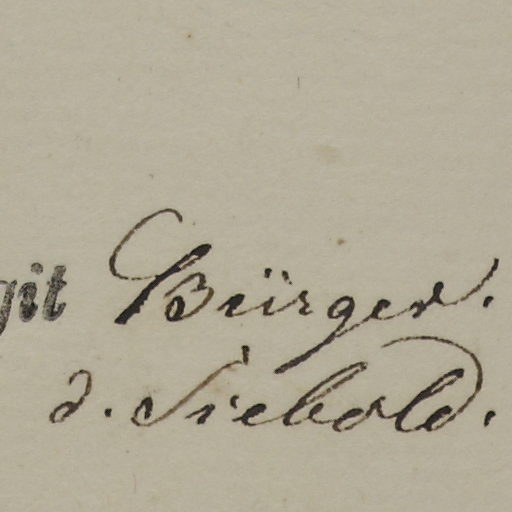 git Bürger.
d. Siebold.